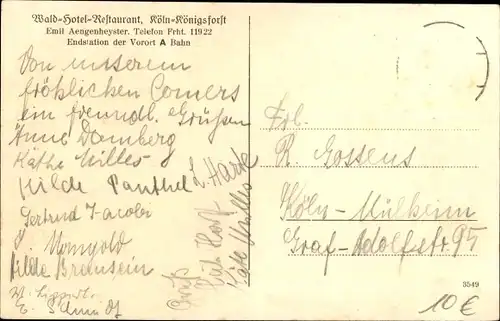 Wald-Hotel-Restaurant, Köln-Königsforst
Emil Aengenheyster. Telefon Frht. 11922
Endstation der Vorort A Bahn
Von unserem
fröhlichen Comers
ein freundl. Grüßen
Änne Domberg
Käthe Milles
Hilde Panthel
L. Harte
Gertrud Jacobi
Mongold
Hilde
E. Schmidt
Gruß
Käte Milles
Frl.
R. Gossens
Köln-Mülheim
Graf-Adolfstr 95
3549
10€